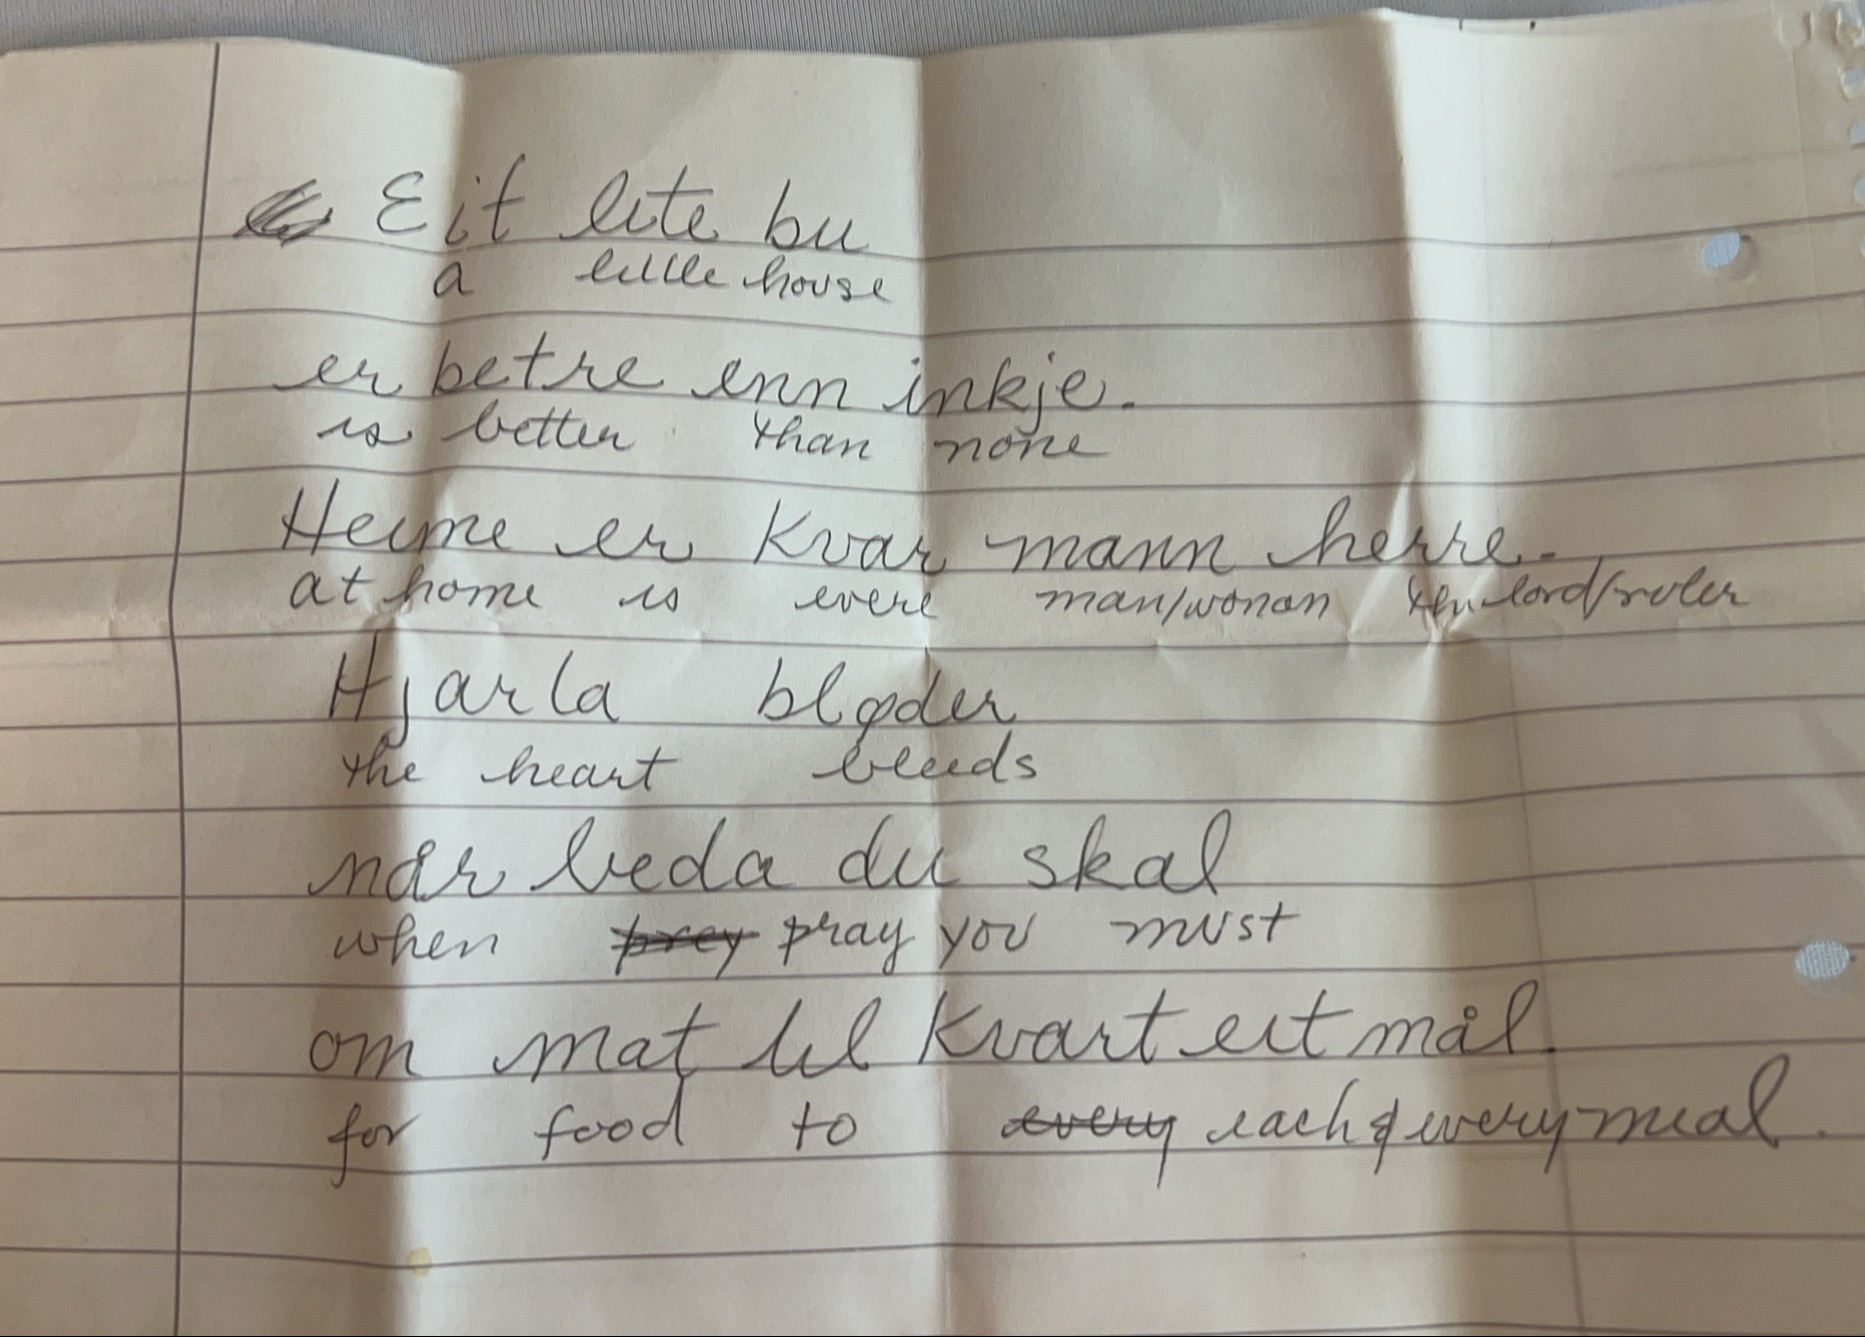 Eit lite bu
a little house
er betre enn inkje.
is better than none
Heime er kvar mann herre.
at home is every man/woman the lord/ruler
Hjarta bløder
the heart bleeds
når beda du skal
when prey pray you must
om mat til kvart eit mål.
for food to every each & every meal.